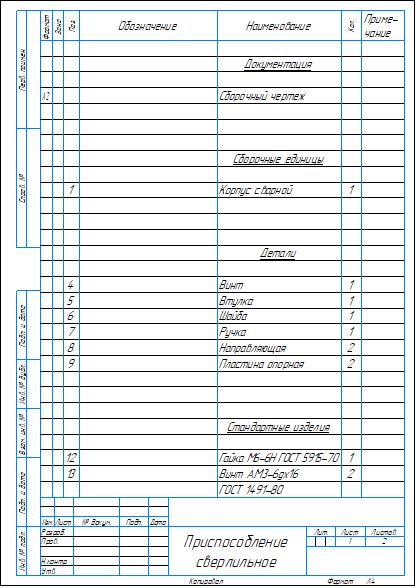 Формат Зона Поз. Обозначение Наименование Кол. Приме-
чание
Документация
А3 Сборочный чертеж
Сборочные единицы
1 Корпус сварной 1
Детали
4 Винт 1
5 Втулка 1
6 Шайба 1
7 Ручка 1
8 Направляющая 2
9 Пластина опорная 2
Стандартные изделия
12 Гайка М6-6Н ГОСТ 5915-70 1
13 Винт АМ3-6gх16 2
ГОСТ 1491-80
Перв. примен.
Справ. №
Подп. и дата
Инв. № дубл.
Взам. инв. №
Подп. и дата
Инв. № подл.
Изм. Лист № докум. Подп. Дата
Разраб.
Пров.
Н.контр.
Утв.
Приспособление
сверлильное
Лит. Лист Листов
1 2
Копировал Формат А4